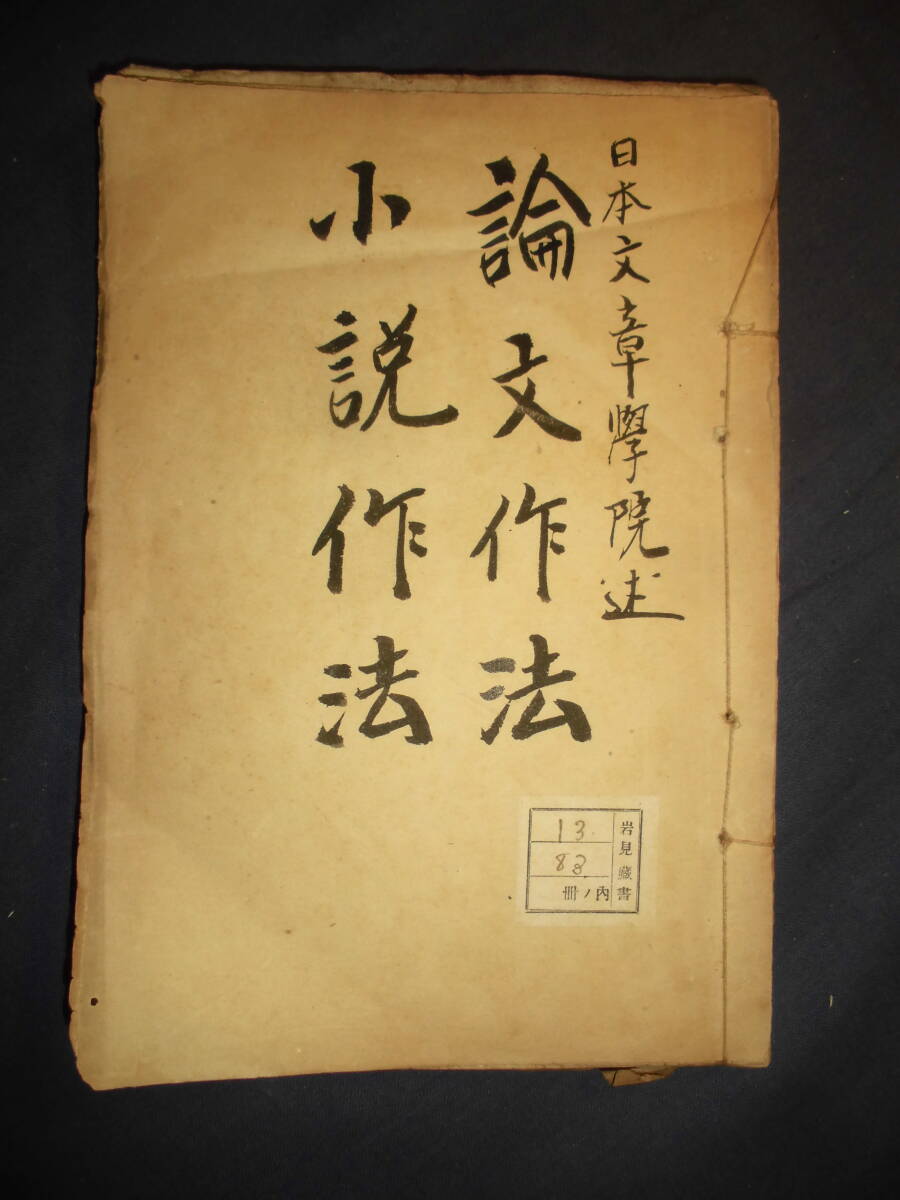 日本文章學院述
論文作法
小説作法
岩見藏書
13.
83
内ノ冊